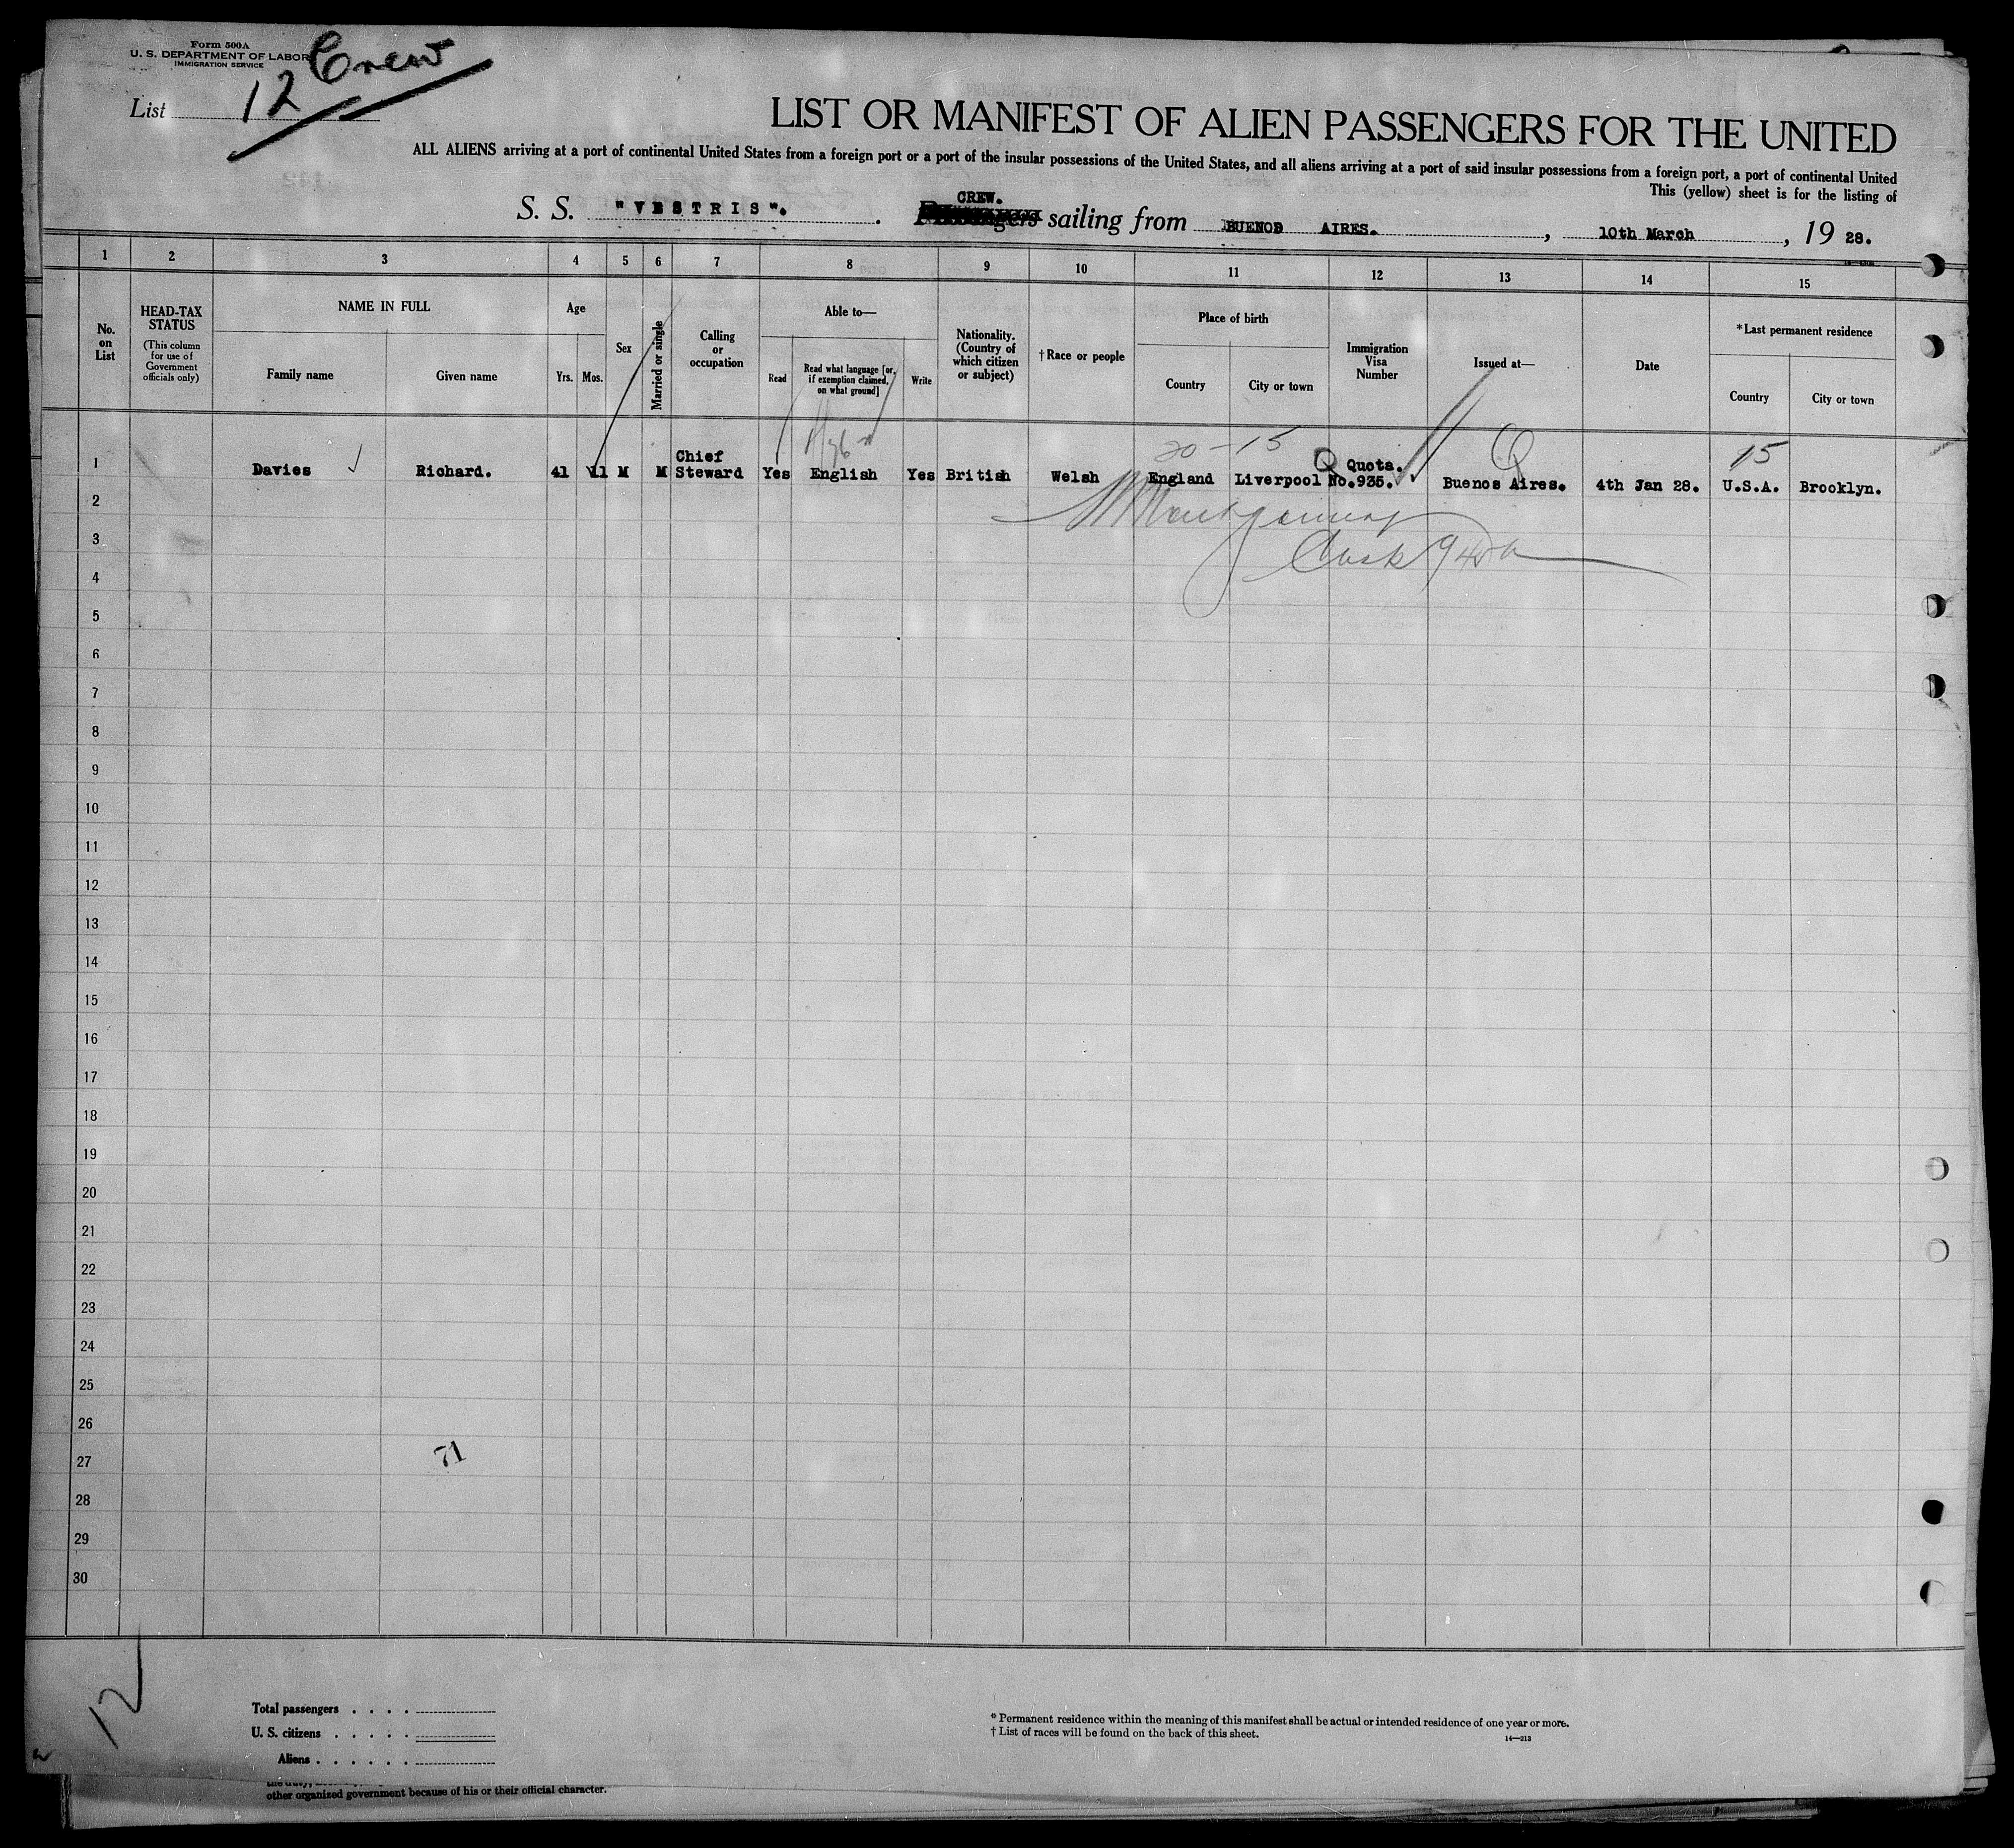 Form 500A
U. S. DEPARTMENT OF LABOR
IMMIGRATION SERVICE
Crew
List 12
LIST OR MANIFEST OF ALIEN PASSENGERS FOR THE UNITED
ALL ALIENS arriving at a port of continental United States from a foreign port or a port of the insular possessions of the United States, and all aliens arriving at a port of said insular possessions from a foreign port, a port of continental United
This (yellow) sheet is for the listing of
CREW.
S. S. "VESTRIS". Passengers sailing from BUENOS AIRES. , 10th March , 19 28.
1 2 3 4 5 6 7 8 9 10 11 12 13 14 15
No. on List
HEAD-TAX STATUS
(This column for use of Government officials only)
NAME IN FULL
Family name Given name
Age
Yrs. Mos.
Sex
Married or single
Calling or occupation
Able to—
Read
Read what language [or, if exemption claimed, on what ground]
Write
Nationality. (Country of which citizen or subject)
† Race or people
Place of birth
Country City or town
Immigration Visa Number
Issued at—
Date
*Last permanent residence
Country City or town
20-15 Q Q 15
1 Davies Richard. 41 11 M M Chief Steward Yes English Yes British Welsh England Liverpool Quota. No.935. Buenos Aires. 4th Jan 28. U.S.A. Brooklyn.
2
3
4
5
6
7
8
9
10
11
12
13
14
15
16
17
18
19
20
21
22
23
24
25
26
71
27
28
29
30
12
Total passengers . . . .
U. S. citizens . . . . .
Aliens . . . . . .
* Permanent residence within the meaning of this manifest shall be actual or intended residence of one year or more.
† List of races will be found on the back of this sheet.
14—213
other organized government because of his or their official character.